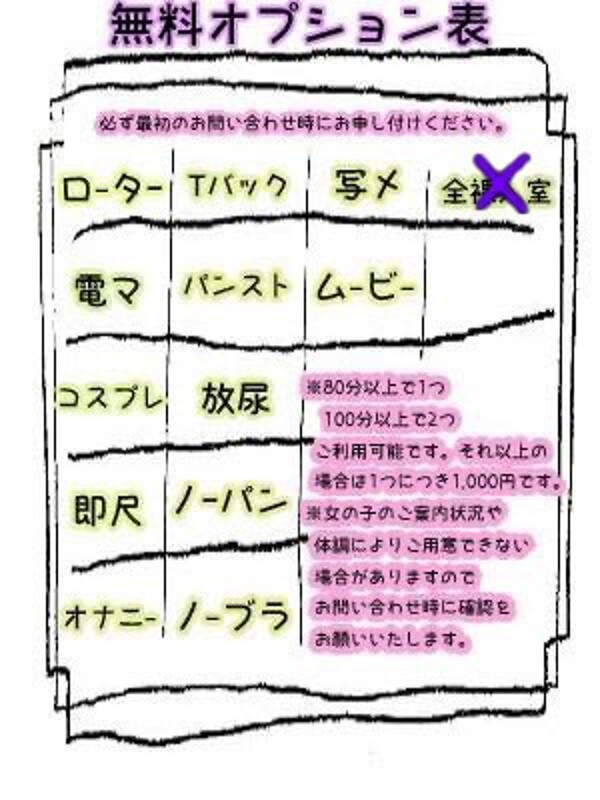 無料オプション表
必ず最初のお問い合わせ時にお申し付けください。
ローター Tバック 写メ 全裸 室
電マ パンスト ムービー
コスプレ 放尿
即尺 ノーパン
オナニー ノーブラ
※80分以上で1つ
100分以上で2つ
ご利用可能です。それ以上の
場合は1つにつき1,000円です。
※女の子のご案内状況や
体調によりご用意できない
場合がありますので
お問い合わせ時に確認を
お願いいたします。